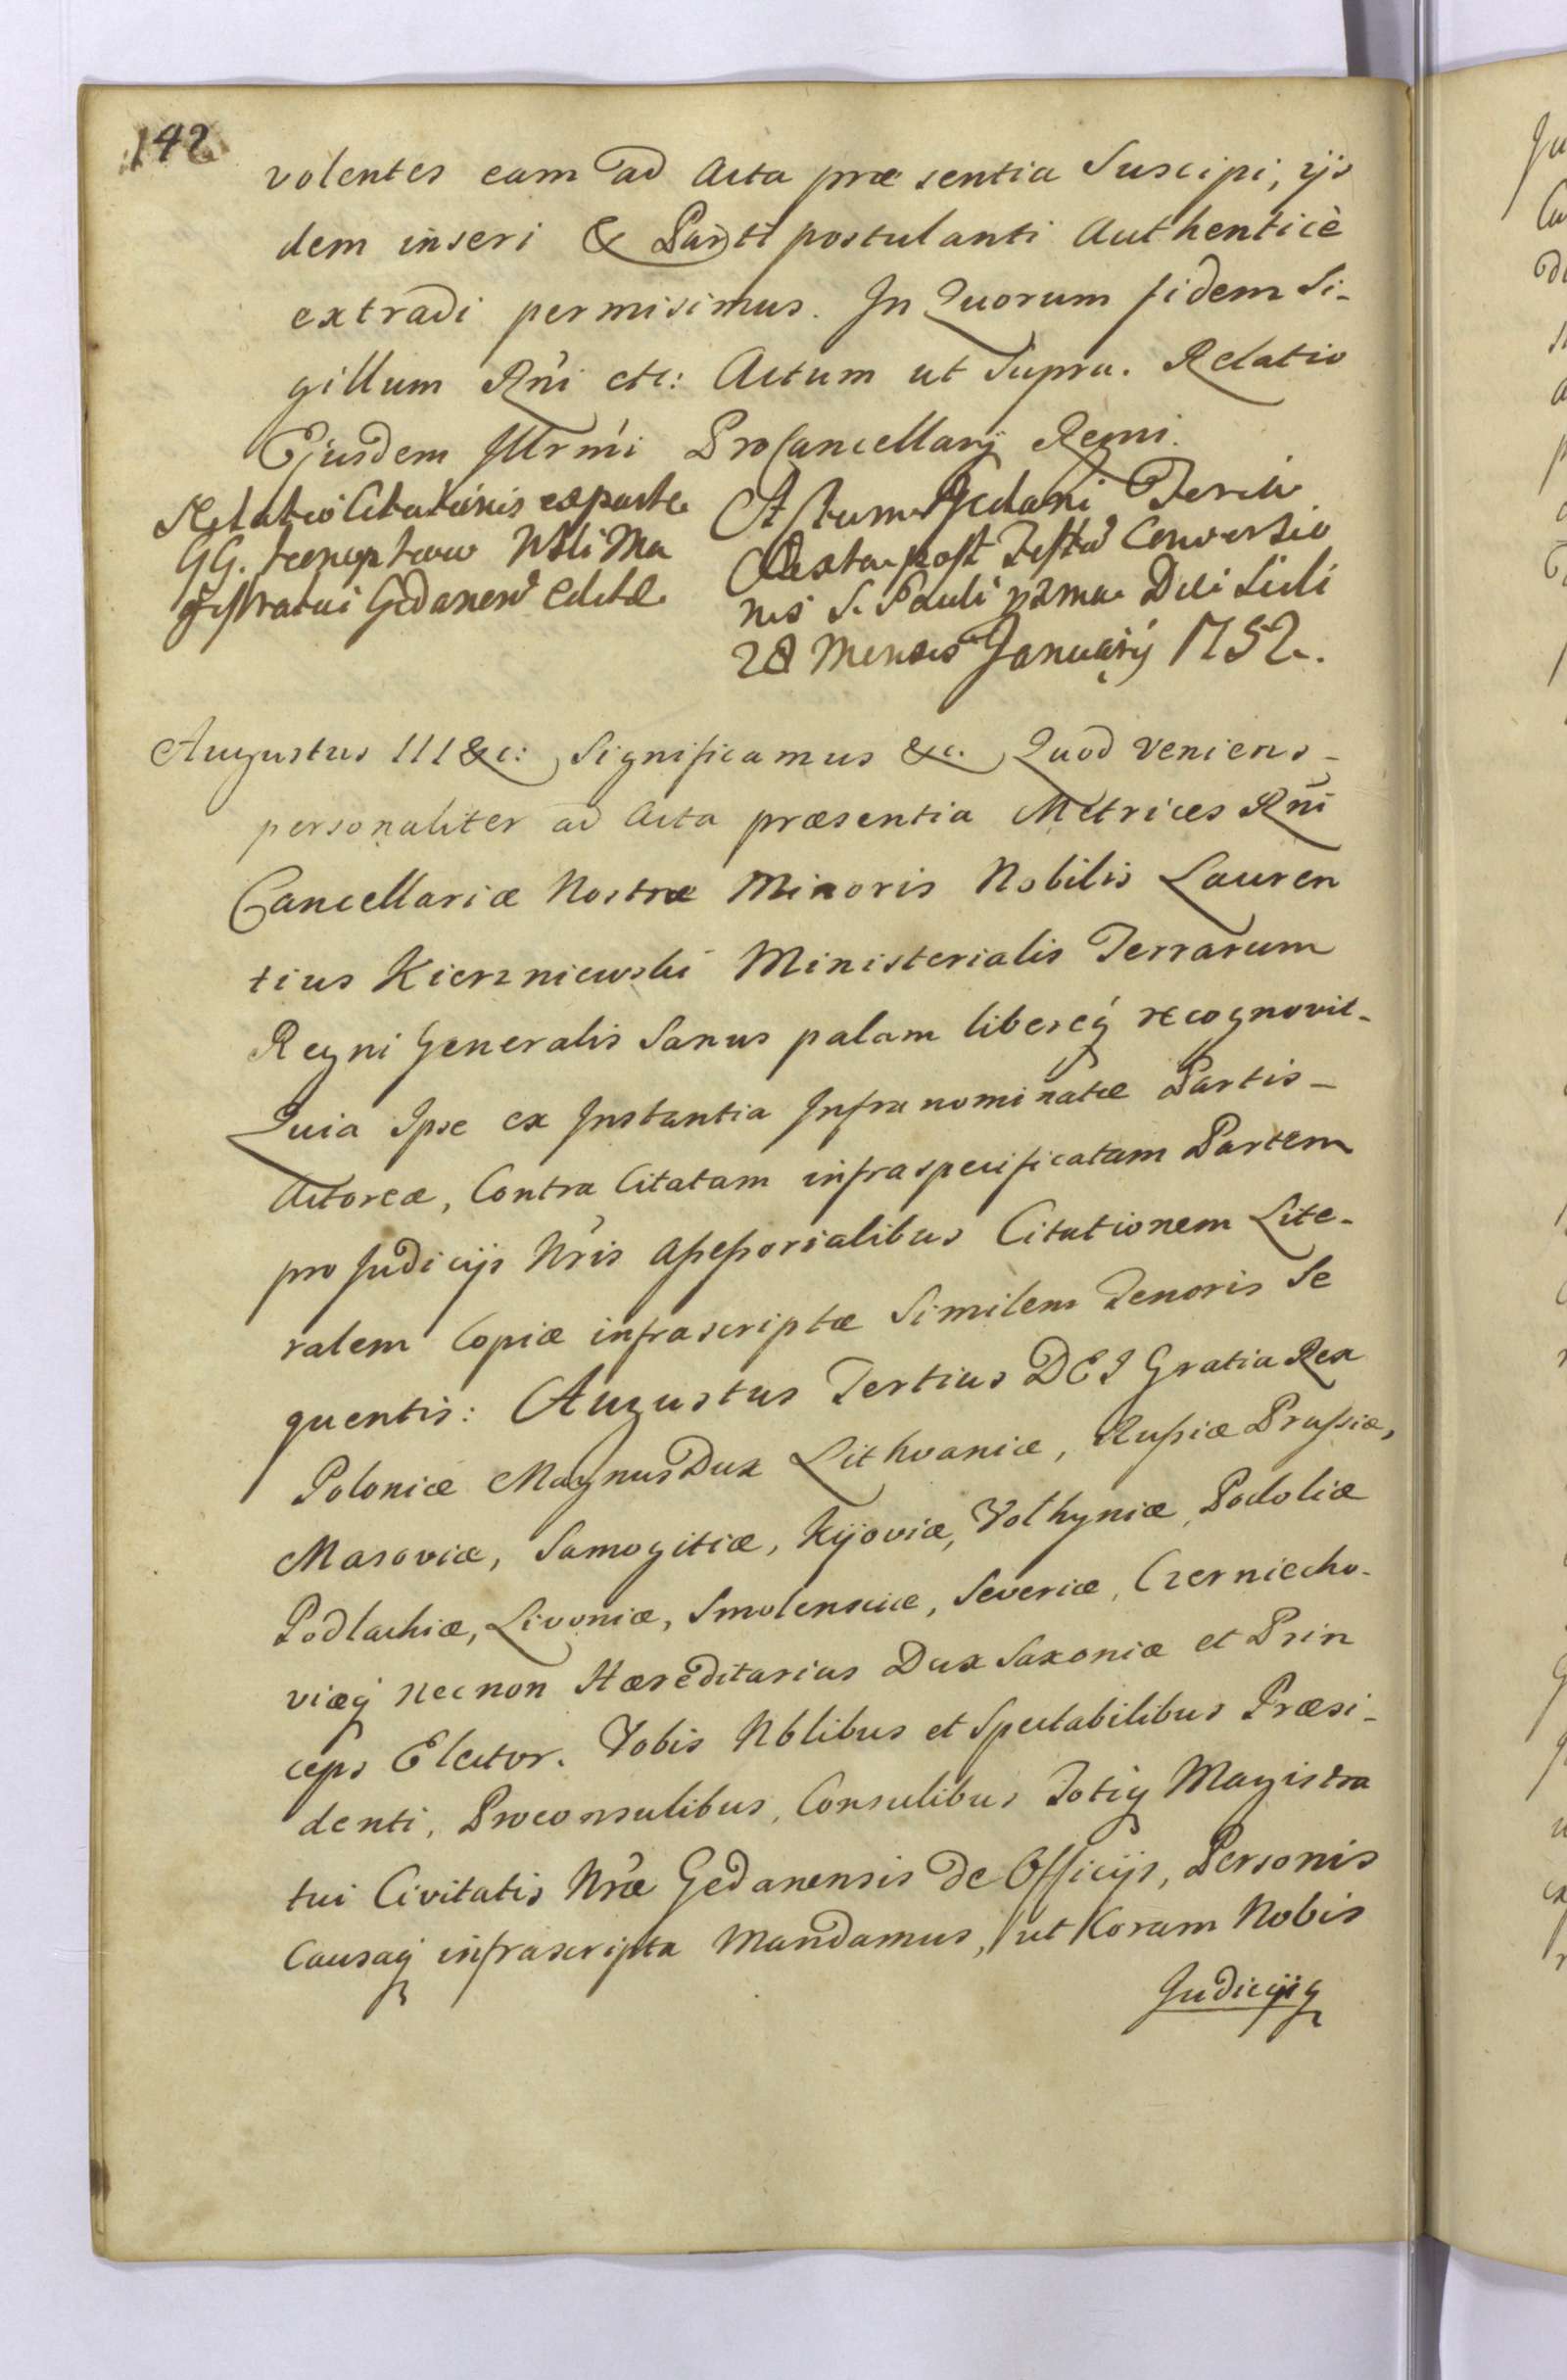 142
volentes eam ad Acta præsentia Suscipi, ijs
dem inseri & Parti postulanti Authenticè
extradi permisimus. In Quorum fidem Si-
gillum Rñi etc: Actum ut Supra. Relatio
Ejusdem Illrmi ProCancellarij Regni.
Relatio Citationis ex parte
GG. Nbli Ma
gistratui Gedanen editæ
Actum Gedani Feria
Sexta post Festũ Conversio
nis S. Pauli prima Die Sicili
28 Mensis Januarij 1752.
Augustus III &c: Significamus &c. Quod veniens -
personaliter ad Acta præsentia Metrices Rñi
Cancellariæ Nostræ Minoris Nobilis Lauren
tius Kierzniewski Ministerialis Terrarum
Regni Generalis Sanus palam libereq́ recognovit -
Quia Ipse ex Instantia Infra nominatæ Partis -
Actoreæ, Contra Citatam infraspecificatam Partem
pro Judicijs Nris Assessorialibus Citationem Lite-
ralem Copiæ infrascriptæ Similem Tenoris Se
quentis: Augustus Tertius DEI Gratia Rex
Poloniæ Magnus Dux Lithvaniæ, Russiæ Prussiæ,
Masoviæ, Samogitiæ, Kijoviæ, Volhyniæ, Podoliæ
Podlachiæ, Livoniæ, Smolensciæ, Severiæ, Czerniecho-
viæq́ necnon Hæreditarius Dux Saxoniæ et Prin
ceps Elector. Vobis Nblibus et Spectabilibus Præsi-
denti, Proconsulibus, Consulibus Totiq́ Magistra
tui Civitatis Nræ Gedanensis de Officijs, Personis
Causaq́ infrascripta Mandamus, ut Coram Nobis
Judicijsq́